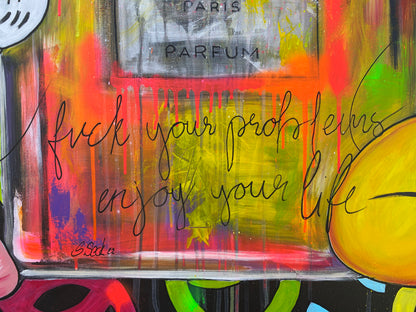 PARIS
PARFUM
fuck your problems
enjoy your life